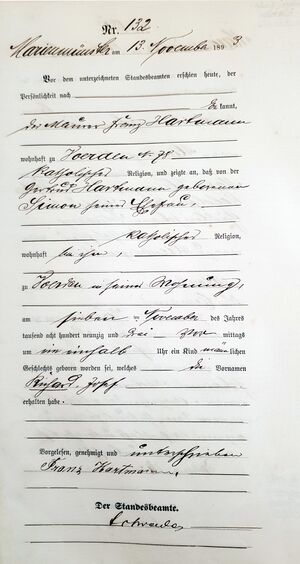 Nr. 132
Marienmünster am 13. November 1893
Vor dem unterzeichneten Standesbeamten erschien heute, der
Persönlichkeit nach
bekannt,
der Maurer Franz Hartmann
wohnhaft zu Voerden N. 78
katholischer Religion, und zeigte an, daß von der
Gertrud Hartmann geborenen
Simon seiner Ehefrau,
katholischer Religion,
wohnhaft bei ihm,
zu Voerden in seiner Wohnung,
am sieben November des Jahres
tausend acht hundert neunzig und drei Vor mittags
um ein halb Uhr ein Kind männlichen
Geschlechts geboren worden sei, welches die Vornamen
Josef
erhalten habe.
Vorgelesen, genehmigt und unterschrieben
Franz Hartmann.
Der Standesbeamte.